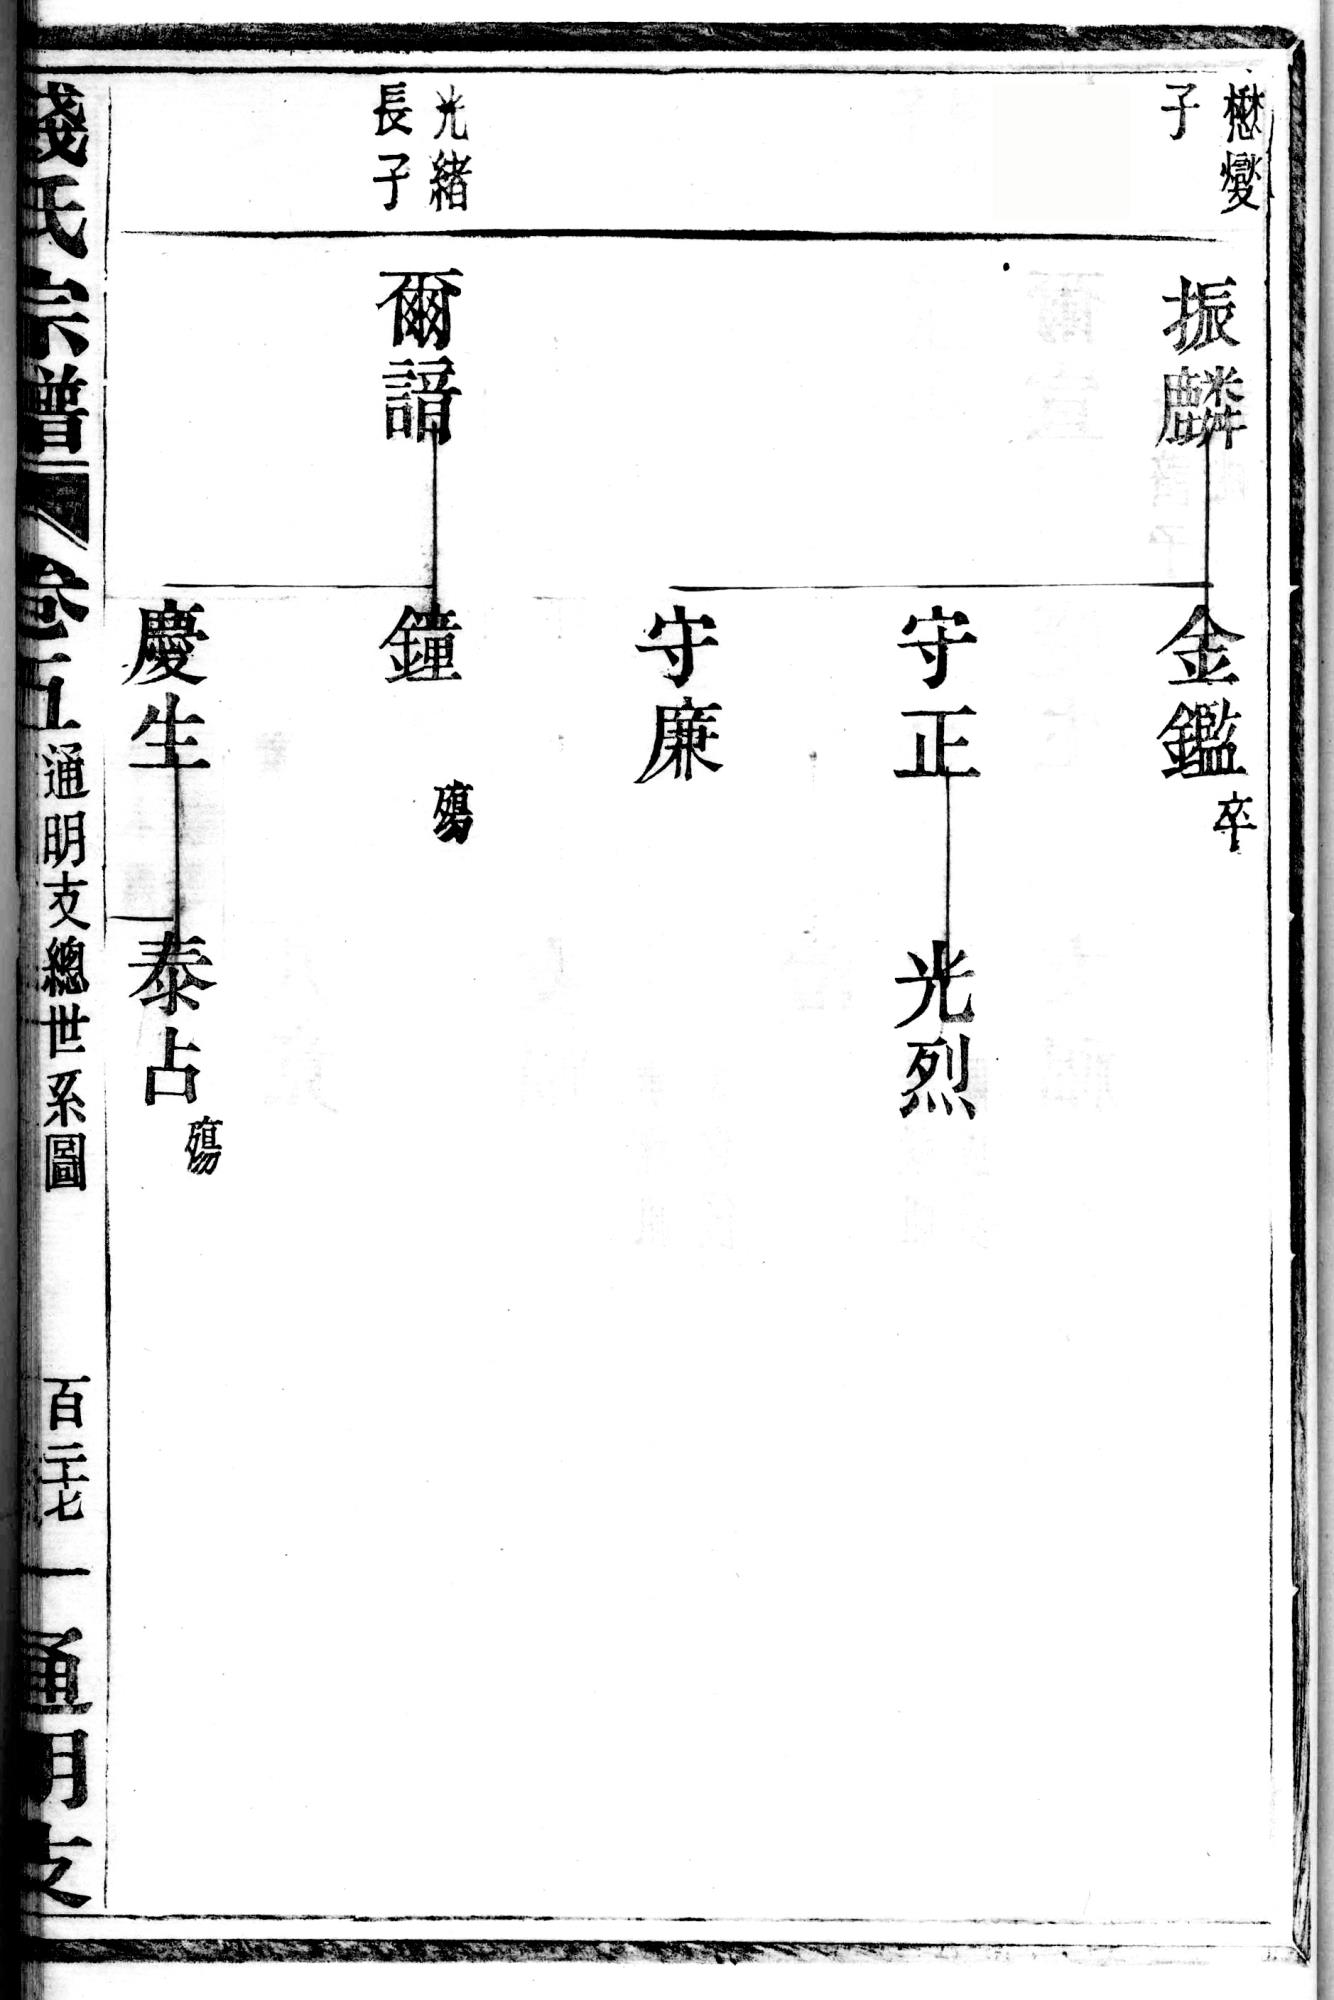 懋燮
子
振麟
金鑑
卒
守正
光烈
守廉
光緒
長子
爾諳
鐘
殤
慶生
泰占
殤
錢氏宗譜
卷五
通明支總世系圖
百二十七
通明支